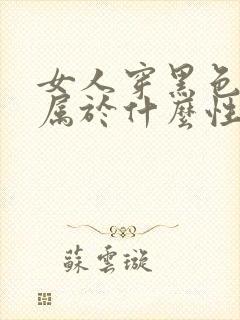 女人穿黑色
属於什麼性
蘇雲璇